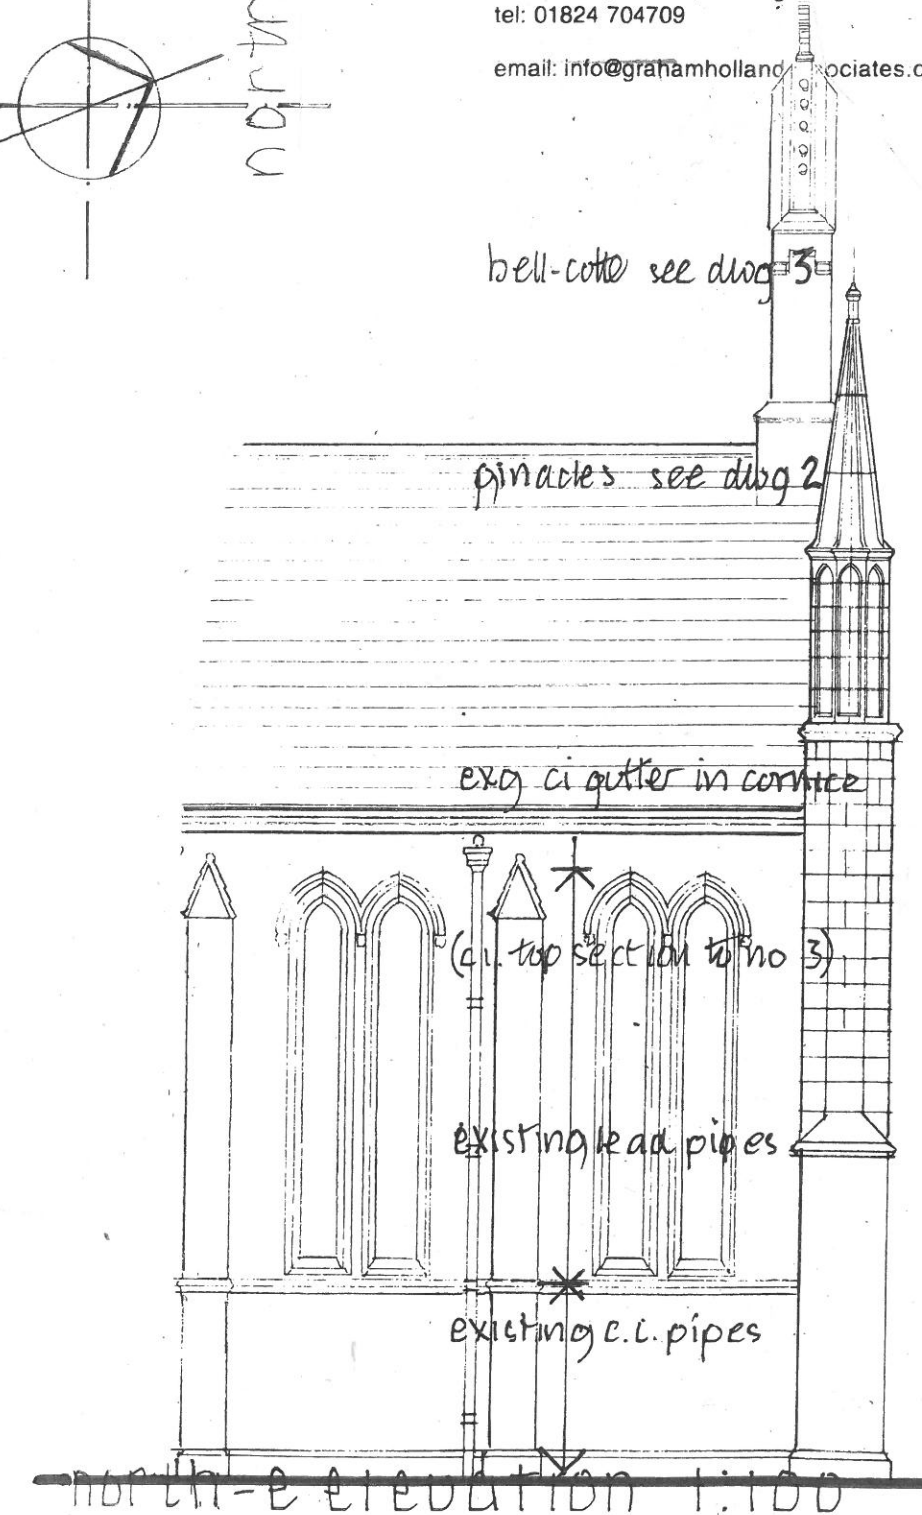 tel: 01824 704709
email: info@grahamholland
north
bell-cote see dwg 3
pinacles see dwg 2
exg ci gutter in cornice
(c.i. top section to no 3)
existing lead pipes
existing c.i. pipes
north-e elevation 1:100